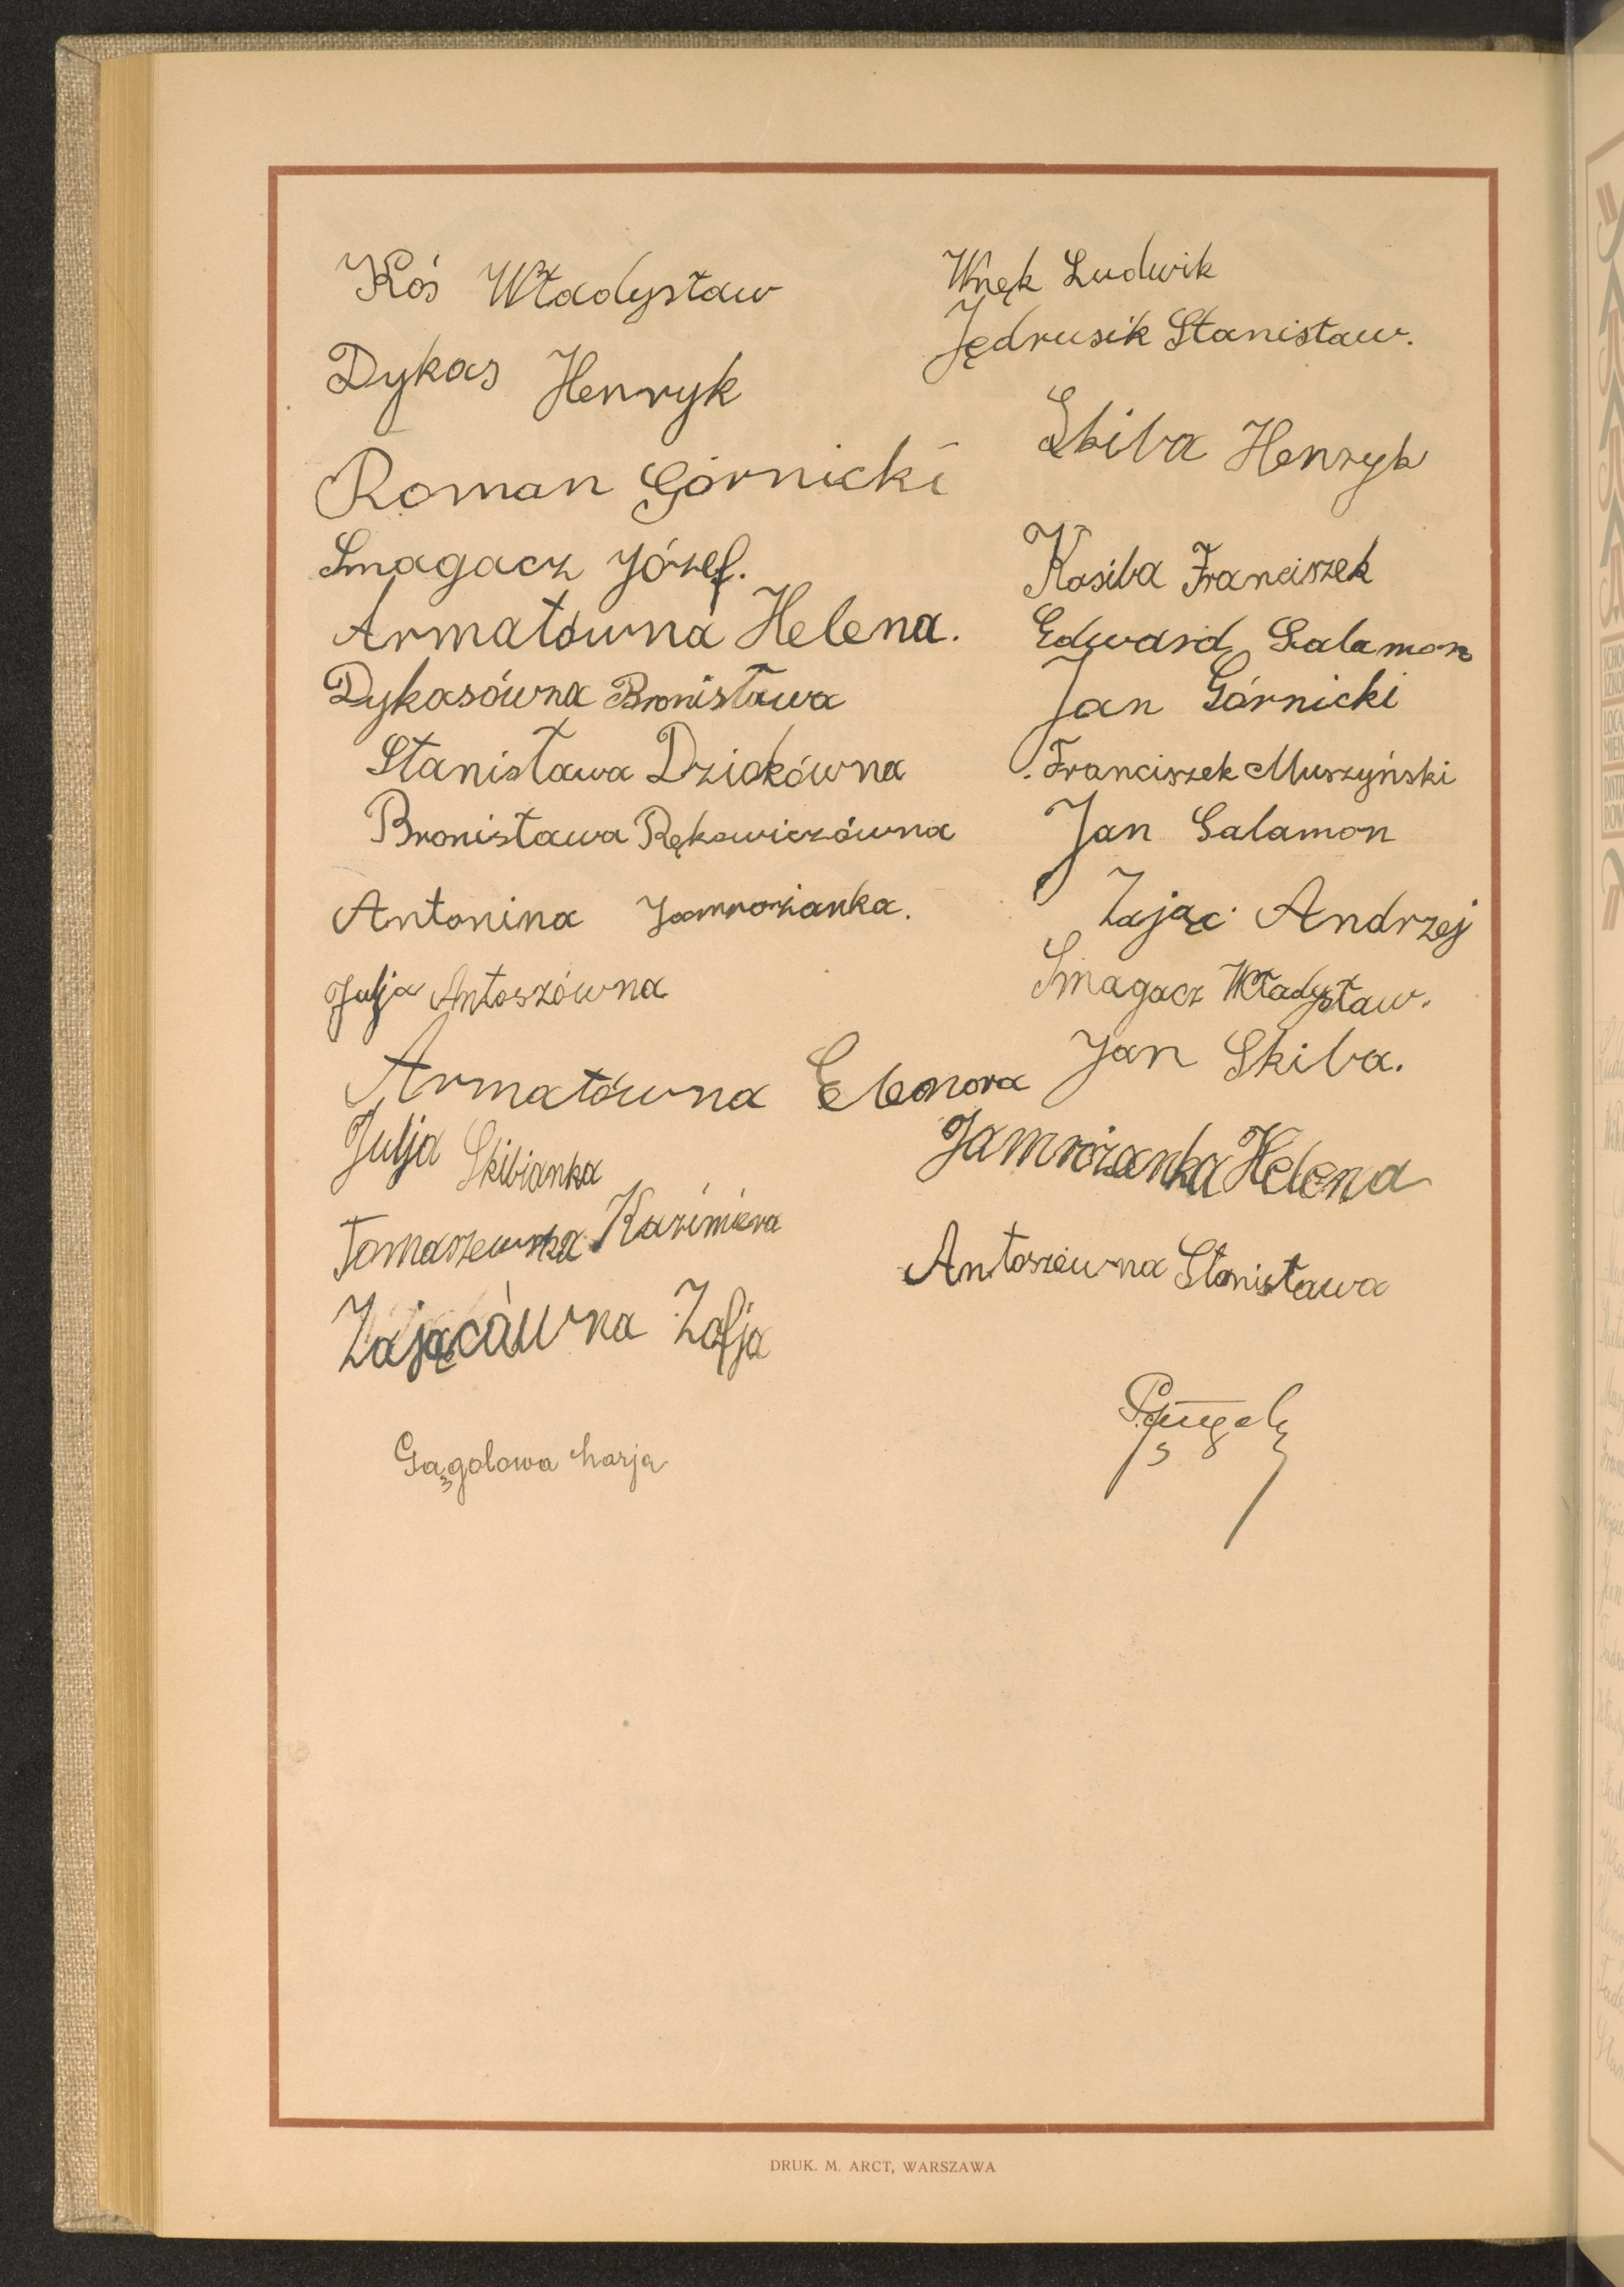 Koś Władysław
Dykas Henryk
Roman Górnicki
Smagacz Józef.
Armatówna Helena.
Dykasówna Bronisława
Stanisława Dziokówna
Bronisława Rękawiczówna
Antonina Jamrożanka.
Julja Antoszówna
Armatówna Eleonora
Julja Skibianka
Tomaszewska Kazimiera
Zającówna Zofja
Gągolowa Marja
Wnęk Ludwik
Jędrusik Stanisław.
Skiba Henryk
Kasiba Franciszek
Edward Salamon
Jan Górnicki
Franciszek Muszyński
Jan Salamon
Zając Andrzej
Smagacz Władysław.
Jan Skiba.
Jamrożanka Helena
Antoszówna Stanisława
DRUK. M. ARCT, WARSZAWA